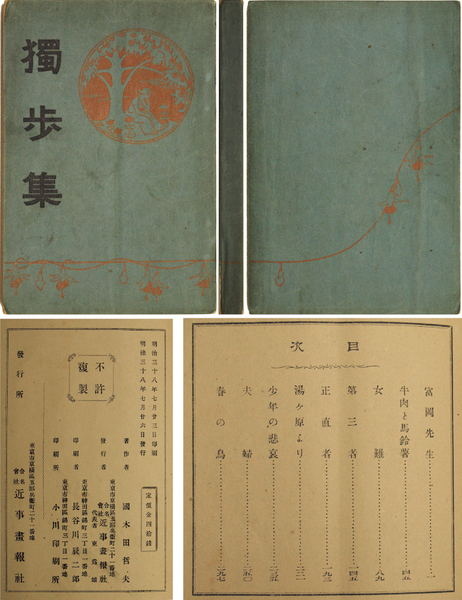 獨步集
明治三十八年七月廿三日印刷
明治三十八年七月廿六日發行
不許
複製
定價金四拾錢
著作者 國木田哲夫
東京市京橋區五郎兵衛町二十一番地
發行者 合名會社 近事畫報社
代表者 東
東京市神田區錦町三丁目一番地
印刷者 長谷川辰二郎
東京市神田區錦町三丁目一番地
印刷所 小川印刷所
發行所
東京市京橋區五郎兵衛町二十一番地
合名會社 近事畫報社
目次
富岡先生 一
牛肉と馬鈴薯 四五
女難 八九
第三者 一四五
正直者 一九三
湯ヶ原より
少年の悲哀
夫婦
春の鳥